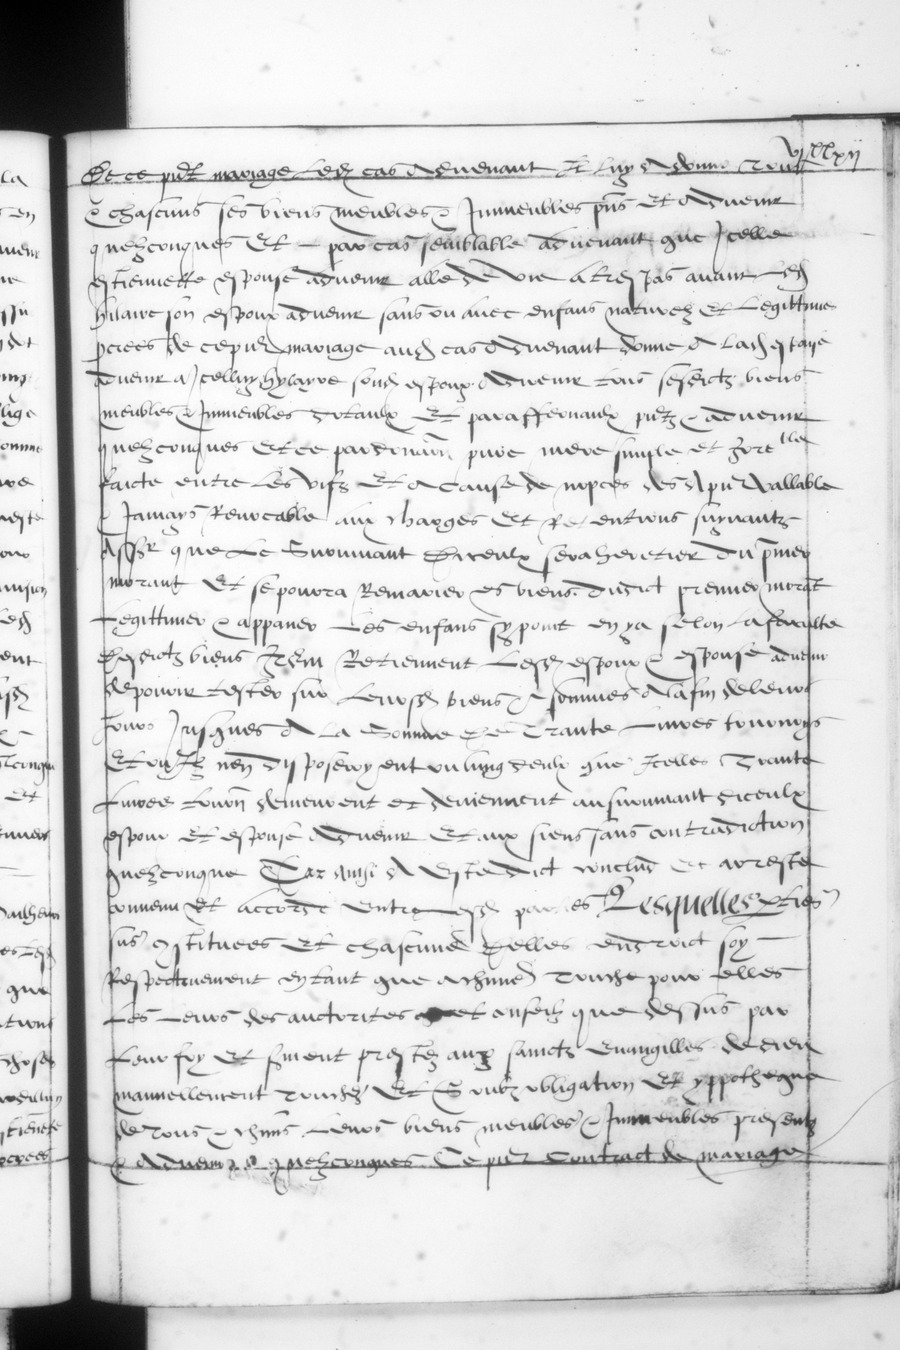 vi xx xii
De ce pnt mariage led cas advenant et luy a donne tous
& chascuns ses biens meubles & Inmeubles pns et advenir
quelzconques Et par cas semblable advenant que Icelle
estiennette espouse advenir alle de vie a trespas avant led
hilaire son espoux advenir sans ou avec enfans naturelz et legittime
pcrees de ce pnt mariage aud cas advenant donne a lad espouse
advenir a Icelluy hylayre sond espoux advenir tous sesdictz biens
meubles & Inmeubles dotaulx et paraffernaulx pntz & advenir
quelzconques Et ce par donaon pure mere simple et
faicte entre les vifz Et a cause de nopces des a pnt vallable
& Jamays Revocable aux charges Et Retentions suyvantz
Assr que le Survivant diceulx sera heretier du pmier
morant Et se pourra Remarier es biens dudict premier morat
Legittimer & appaner les enfans sy point en ya selon la faculte
desdictz biens Item Retiennent lesd espoux & espouse advenir
de pouvoir tester sur leursd biens & sommes a la fin de leurs
Jours Jusques a la Somme de Trante livres tournoys
Et ou Ilz nen disposeroyent ou lung deulx que Icelles Trante
livres tourn demeurent et deviennent au survivant diceulx
espoux Et espouse advenir Et aux siens sans contradiction
quelzconque Car ainsi a este dict conclud et arreste
convenu et accorde entre lesd parties Lesquelles pties
sus constituees Et chascune delles endroict soy
Respectivement en tant que achune touche pour elles
Les leurs des auctorites et conseilz que dessus par
Leur foy Et sment prestez aux sainctz evangilles de dieu
manuellement touchez Et Soubz obligation Et yppotheque
de tous & chuns leurs biens meubles & Inmeubles presentz
& advenir quelzconques Ce pnt contract de mariage